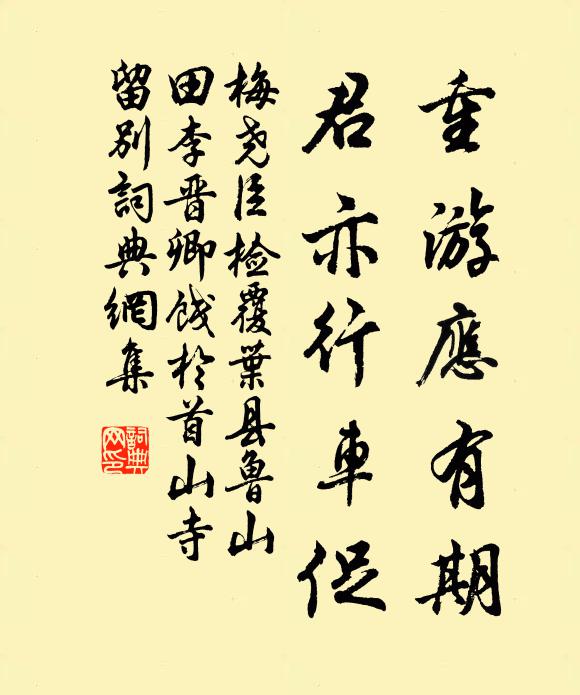 重游應有期
君亦行車促
梅尧臣检覆葉县魯山
田李晋卿餞於首山寺
留别詞典網集
詞典
网印